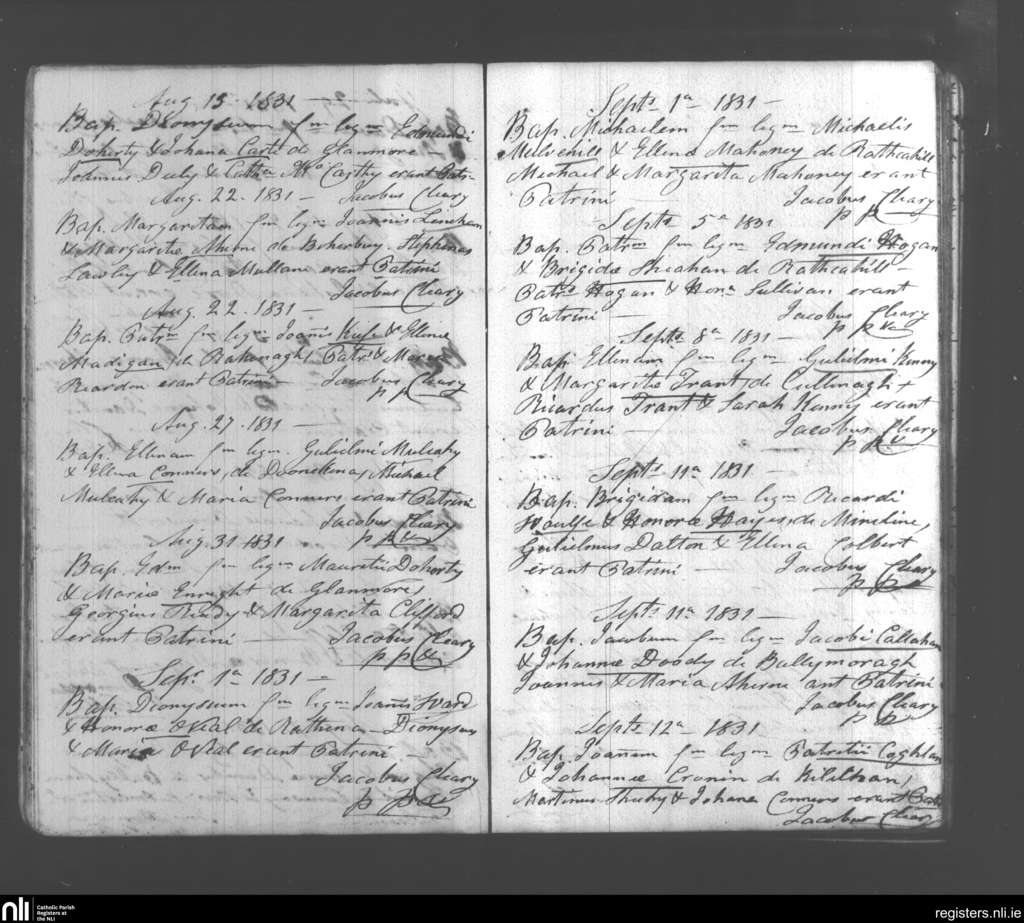 Aug 15. 1831 —
Bap. Dionysium fm legm Edmundi
Doherty & Johana de Glanmore
Joannes Daly & Cathn Mc Carthy erant Patr
Aug. 22. 1831 — Jacobus Cleary
Bap. Margaritam fm legm Joannis Linehan
& Margarita Aherne de Boherbuy. Stephanus
Lawley & Ellena Mullane erant Patrini
Jacobus Cleary
Aug. 22. 1831 —
Bap. Patrm fm legm & Ellenæ
Madigan de Patr & Maria
Reardon erant Patrini — Jacobus Cleary
p p
Aug. 27. 1831 —
Bap. Ellenam fm legm Gulielmi Mulcahy
& Ellena Conners, de Michael
Mulcahy & Maria Conners erant Patrini
Jacobus Cleary
Aug. 31 1831 p p
Bap. Edm fm legm Mauritii Doherty
& Mariæ Enright de Glanmore,
Georgius & Margarita Clifford
erant Patrini — Jacobus Cleary
p p
Sept. 1a 1831 —
Bap. Dionysium fm legm Joannis Ward
& Honoræ ONeal de Rathena — Dionysius
& Maria ONeal erant Patrini —
Jacobus Cleary
p p
Septs 1a 1831 —
Bap. Michaelem fm legm Michaelis
Mulvehill & Ellena Mahoney de Rathcahill
Michael & Margarita Mahoney erant
Patrini — Jacobus Cleary
p p
Septs 5a 1831
Bap. Patrm fm legm Edmundi Hogan
& Brigidæ Sheahan de Rathcahill —
Patrs Hogan & Hona Sullivan erant
Patrini — Jacobus Cleary
p p
Septs 8a 1831 —
Bap. Ellenam fm legm Gulielmi Kenny
& Margaritæ Trant, de Cullinagh +
Ricardus Trant & Sarah Kenny erant
Patrini — Jacobus Cleary
p p
Septs 11a 1831 —
Bap. Brigidam fm legm Ricardi
Woulfe & Honoræ Hayes, de Mineline,
Gulielmus Dalton & Ellena Colbert
erant Patrini — Jacobus Cleary
p p
Septs 11a 1831 —
Bap. Jacobum fm legm Jacobi Callahan
& Johannæ Doody de Ballymoragh
Joannis & Maria Aherne ant Patrini
Jacobus Cleary
p p
Septs 12a 1831
Bap. Joannem fm legm Patritii Coghlan
& Johannæ Cronin de Killilhan,
Martinus Sheehy & Johana Conners erant Patr
Jacobus Cleary
nli
Catholic Parish
Registers at
the NLI
registers.nli.ie